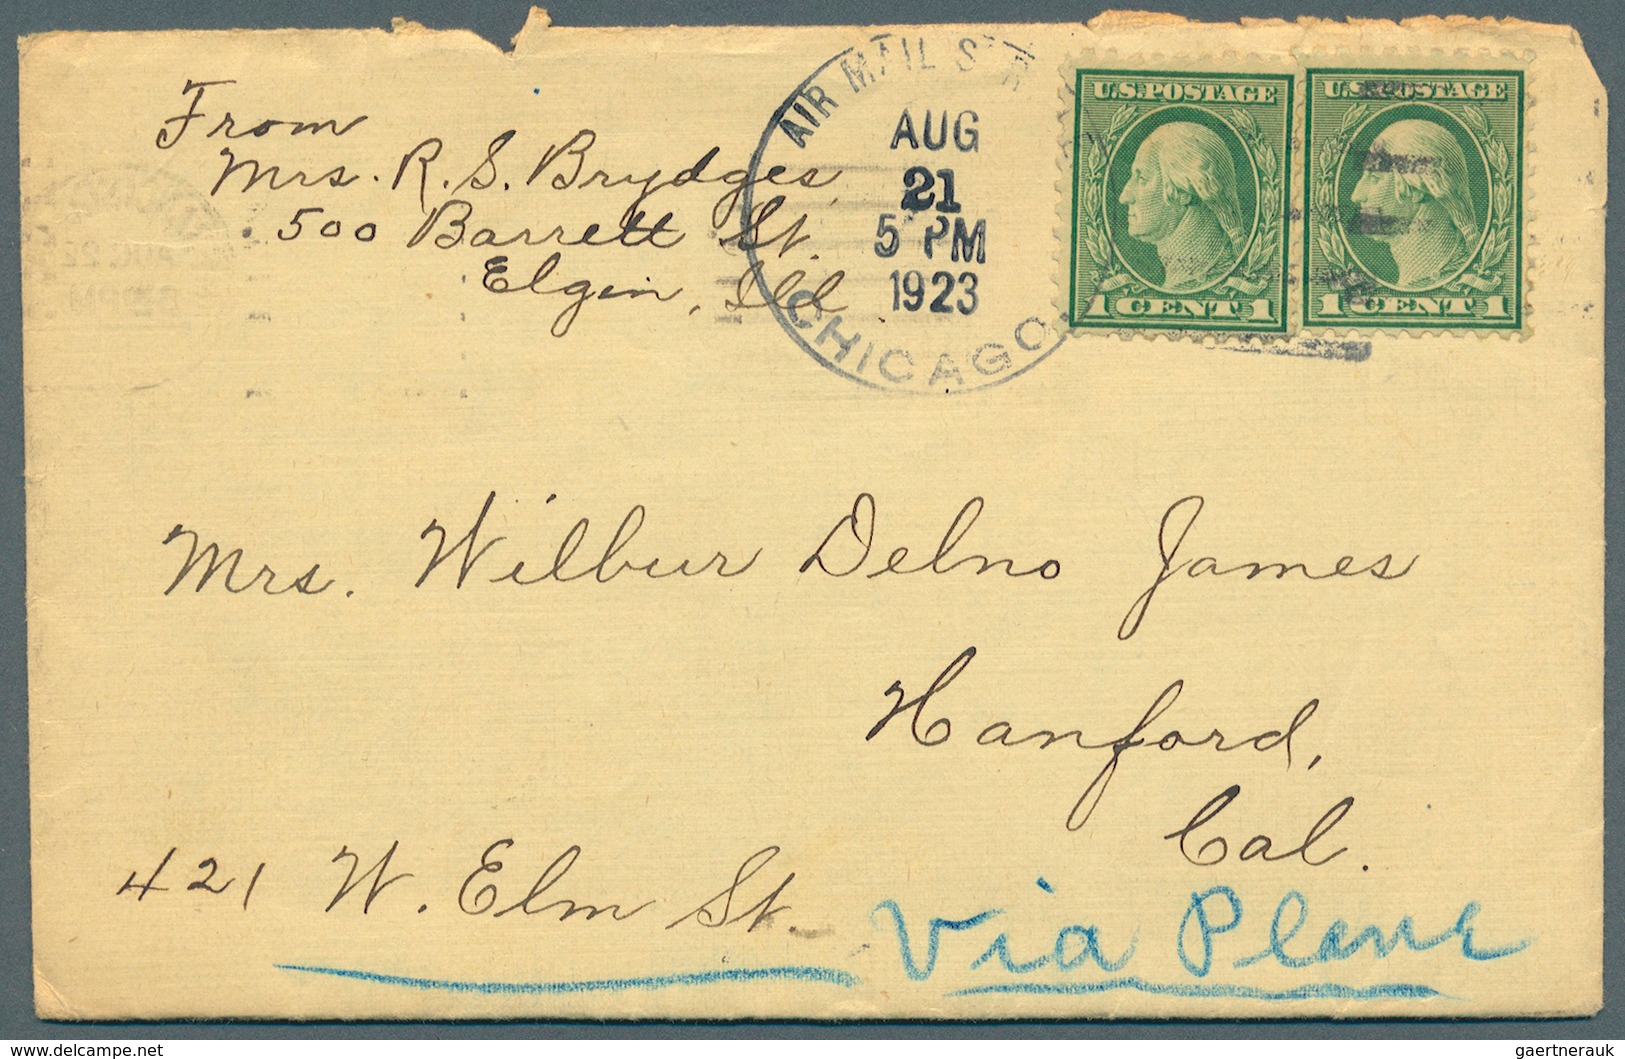 From
Mrs. R. S. Brydges,
500 Barrett St.
Elgin, Ill
AIR MAIL
AUG
21
5 PM
1923
CHICAGO
U.S. POSTAGE
1 CENT 1
U.S. POSTAGE
1 CENT 1
Mrs. Wilbur Delno James
Hanford,
Cal.
421 W. Elm St.
Via Plane
delcampe.net
gaertnerauk